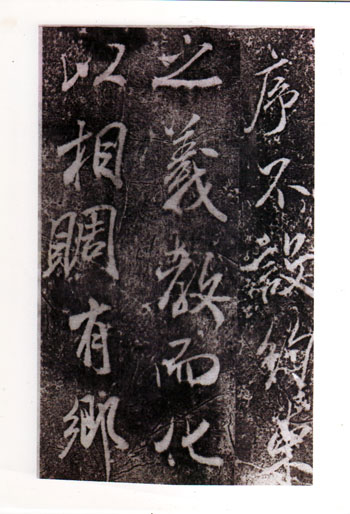 序不設約束
之義教而化
以相賙有鄉